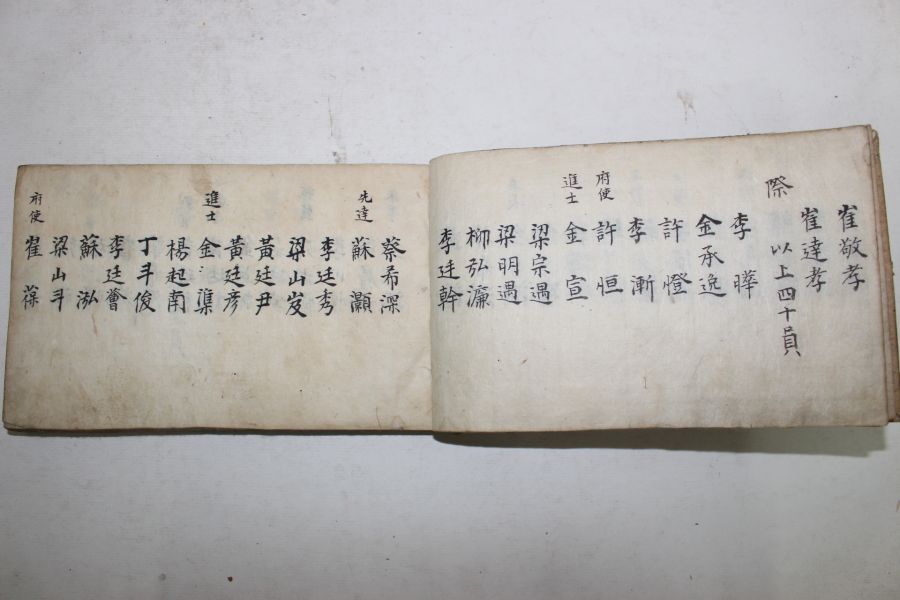 崔敬孝
崔達孝
際 以上四十員
李曄
金承逸
許燈
李漸
府使 許恒
進士 金宣
梁宗遇
梁明遇
柳弘濂
李廷幹
蔡希深
先達 蘇灝
李廷秀
梁山岌
黃廷尹
黃廷彦
進士 金渠
楊起南
丁斗俊
李廷薈
蘇泓
梁山斗
府使 崔葆